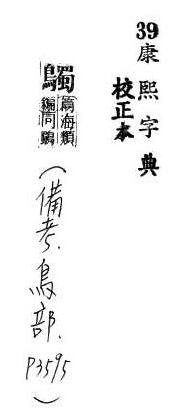 39康熙字典
校正本
篇海類
編同鸀
(備考.鳥部.P3595)